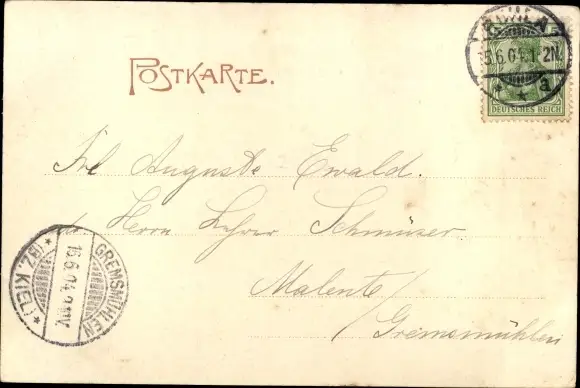 POSTKARTE.
15.6.04.1-2N.
a
DEUTSCHES REICH
Frl Auguste Ewald.
Herrn Lehrer Schmüser
Malente/
Gremsmühlen
GREMSMÜHLEN
16.6.04.
(BZ. KIEL)